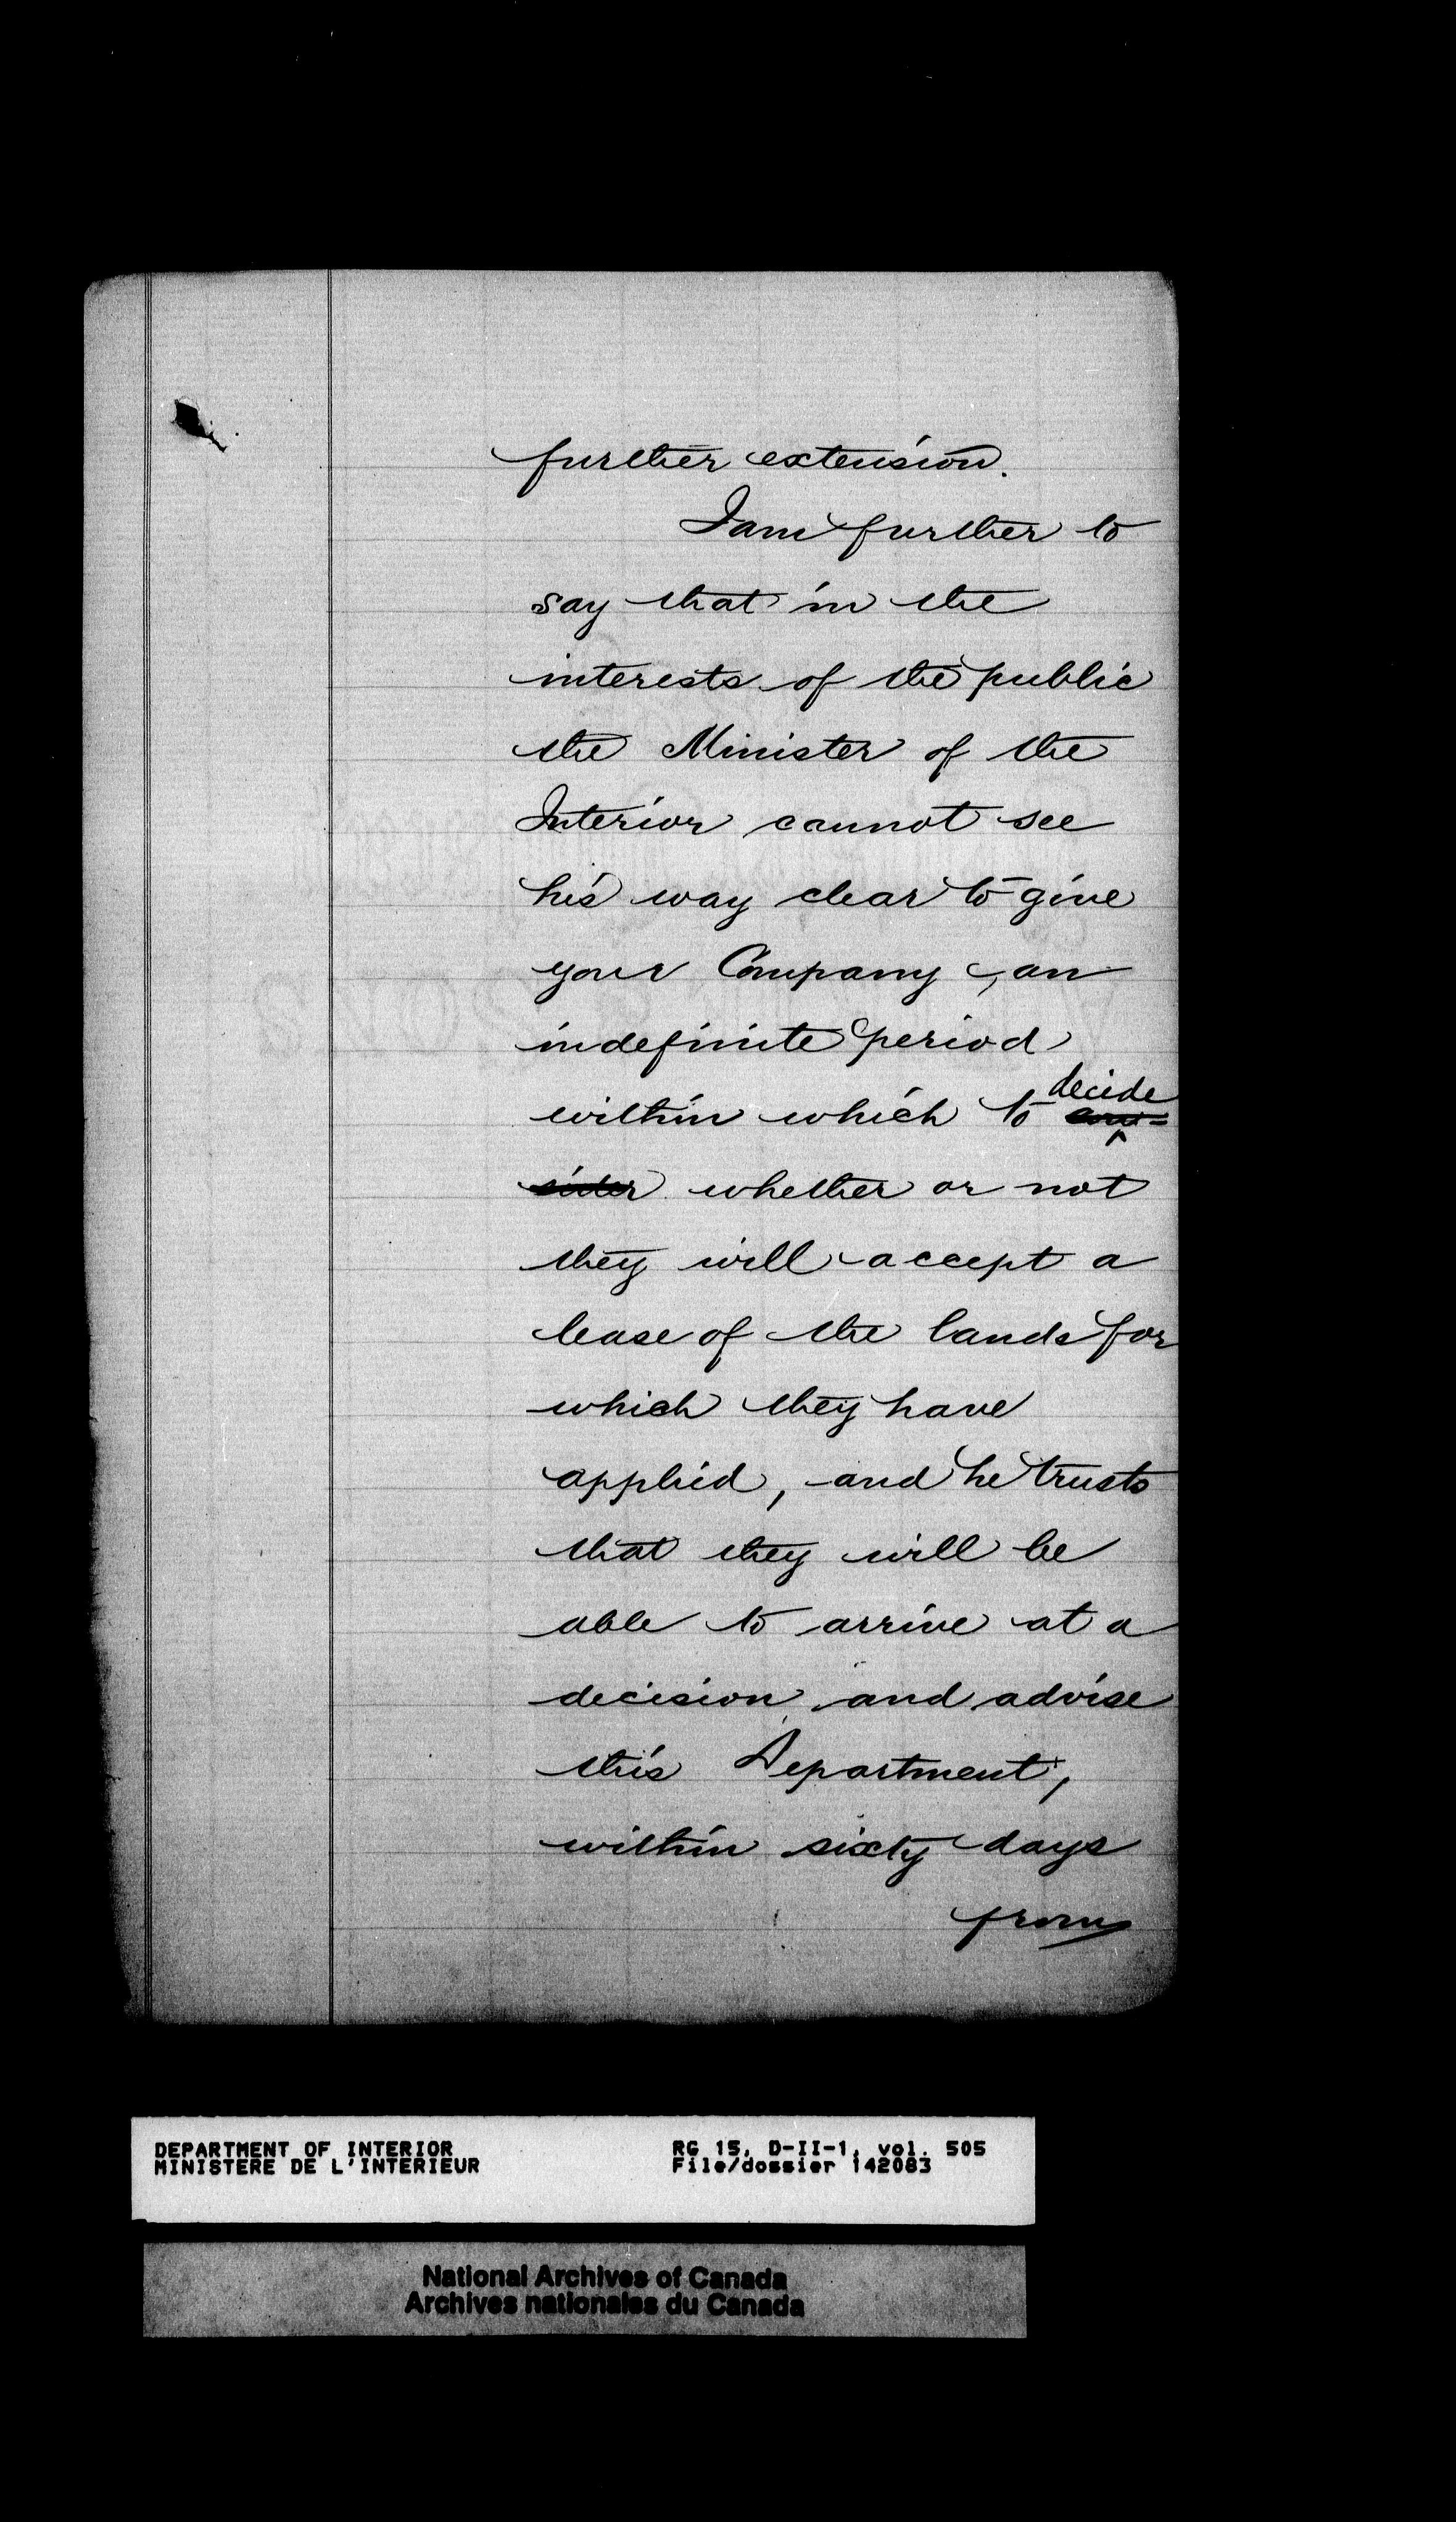 further extension.
I am further to
say that in the
interests of the public
the Minister of the
Interior cannot see
his way clear to give
your Company, an
indefinite period
within which to decide
con=
sider whether or not
they will accept a
lease of the lands for
which they have
applied, and he trusts
that they will be
able to arrive at a
decision and advise
this Department,
within sixty days
from
DEPARTMENT OF INTERIOR
MINISTERE DE L'INTERIEUR
RG 15, D-II-1, vol. 505
File/dossier 142083
National Archives of Canada
Archives nationales du Canada